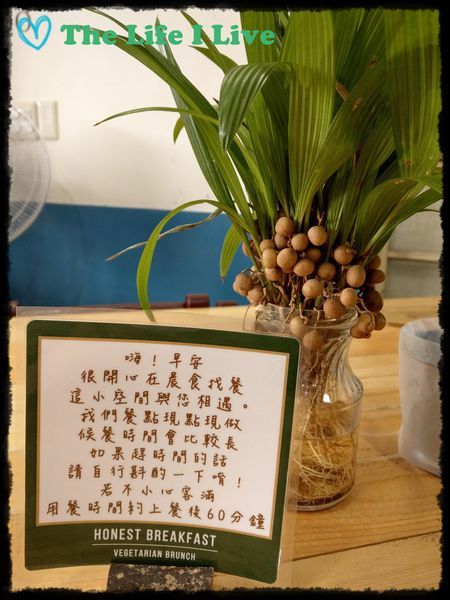 The Life I Live
嗨！早安
很開心在晨食找餐
這小空間與您相遇。
我們餐點現點現做
候餐時間會比較長
如果趕時間的話
請自行斟酌一下唷！
若不小心客滿
用餐時間約上餐後60分鐘
HONEST BREAKFAST
VEGETARIAN BRUNCH